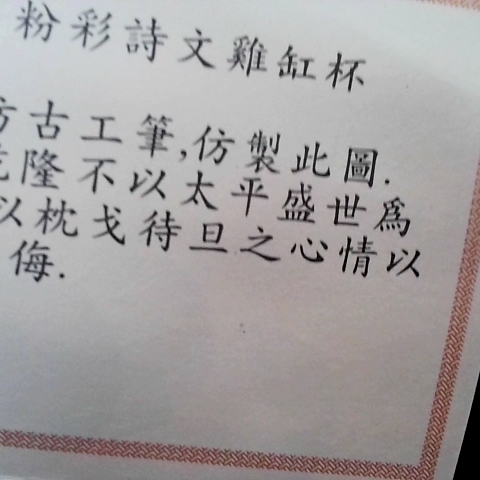 粉彩詩文雞缸杯
仿古工筆,仿製此圖.
乾隆不以太平盛世為
以枕戈待旦之心情以
侮.